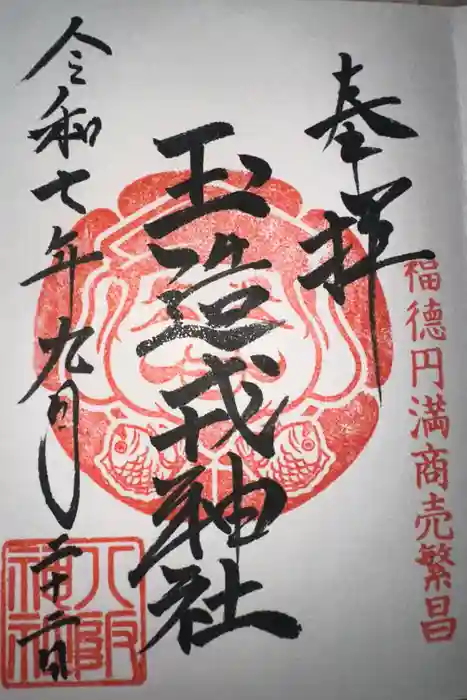 奉拝
福徳円満商売繁昌
玉造戎神社
令和七年九月二十六日
八阪
神社